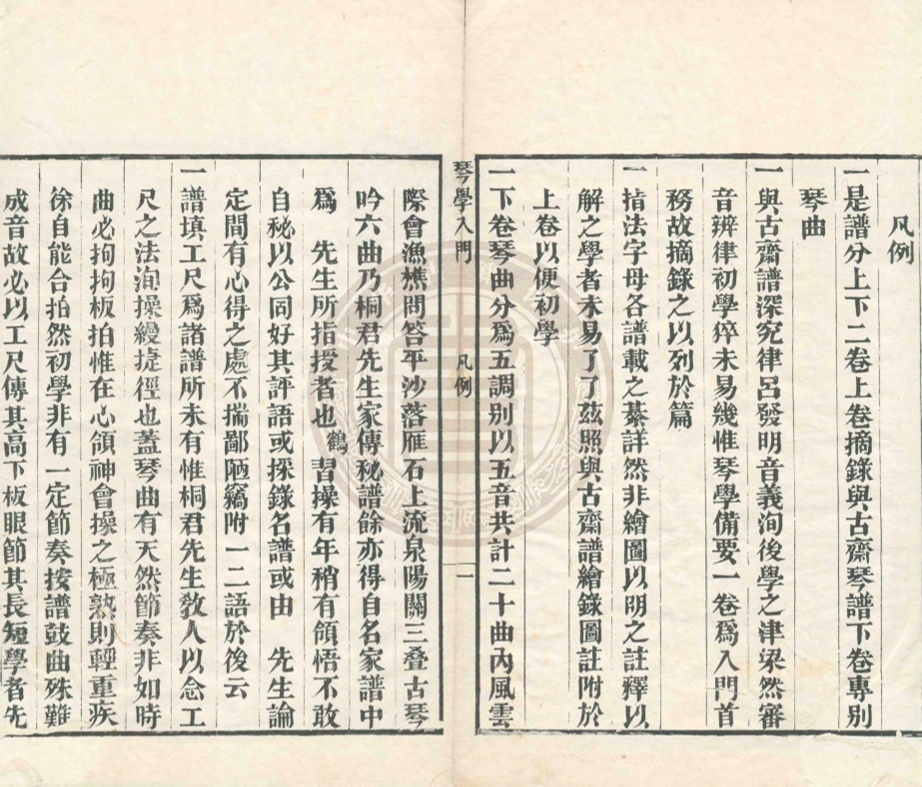 凡例
一是譜分上下二卷上卷摘錄與古齋琴譜下卷專別
琴曲
一與古齋譜深究律呂發明音義洵後學之津梁然審
音辨律初學猝未易幾惟琴學備要一卷爲入門首
務故摘錄之以列於篇
一指法字母各譜載之綦詳然非繪圖以明之註釋以
解之學者未易了了茲照與古齋譜繪錄圖註附於
上卷以便初學
一下卷琴曲分爲五調別以五音共計二十曲內風雲
琴學入門
凡例
一
際會漁樵問答平沙落雁石上流泉陽關三叠古琴
吟六曲乃桐君先生家傳秘譜餘亦得自名家譜中
爲 先生所指授者也鶴習操有年稍有領悟不敢
自秘以公同好其評語或採錄名譜或由 先生論
定間有心得之處不揣鄙陋竊附一二語於後云
一譜填工尺爲諸譜所未有惟桐君先生教人以念工
尺之法洵操縵捷徑也蓋琴曲有天然節奏非如時
曲必拘拘板拍惟在心領神會操之極熟則輕重疾
徐自能合拍然初學非有一定節奏按譜鼓曲殊難
成音故必以工尺傳其高下板眼節其長短學者先